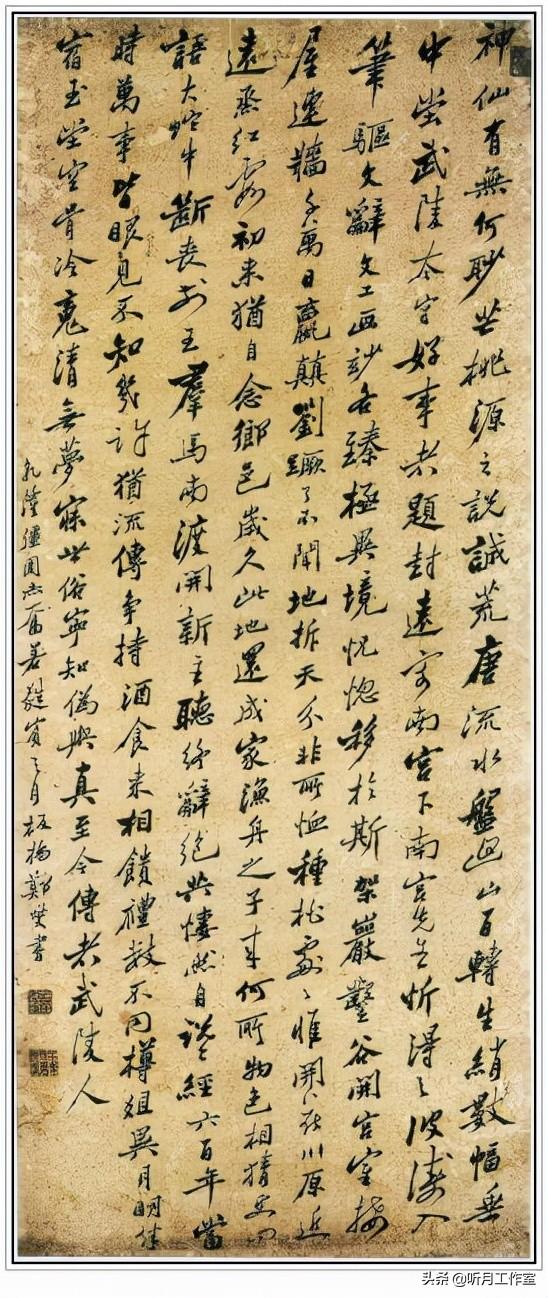 神仙有無何眇芒桃源之說誠荒唐流水盤迴山百轉生綃數幅垂
中堂武陵太守好事者題封遠寄南宮下南宮先生忻得之波濤入
筆驅文辭文工畫妙各臻極異境恍惚移於斯架巖鑿谷開宮室接
屋連牆千萬日嬴顛劉蹶了不聞地坼天分非所恤種桃處〻惟開花川原近
遠蒸紅霞初來猶自念鄉邑歲久此地還成家漁舟之子來何所物色相猜更問
語大蛇中斷喪前王羣馬南渡開新主聽終辭絕共悽然自說經六百年當
時萬事皆眼見不知幾許猶流傳爭持酒食來相饋禮數不同樽俎異月明伴
宿玉堂空骨冷魂清無夢寐世俗寧知偽與真至今傳者武陵人
乾隆彊圉赤奮若蕤賓之月板橋鄭燮書
头条 @听月工作室